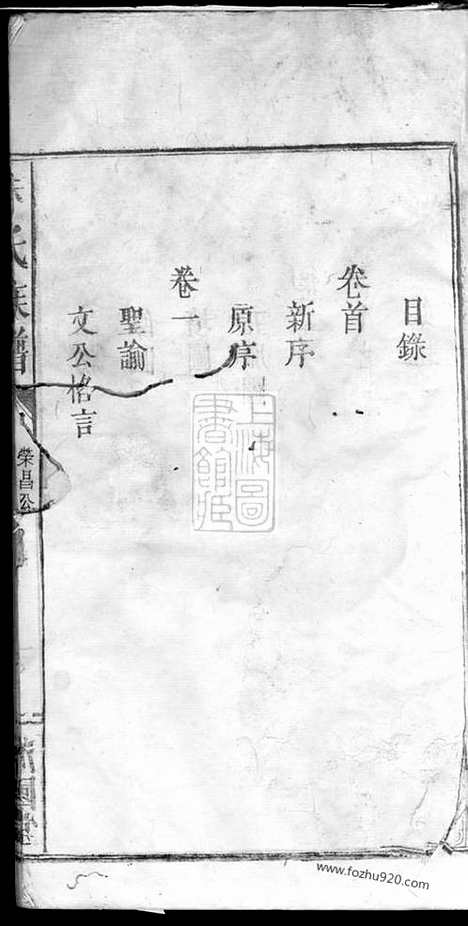 目錄
卷首
新序
原序
卷一
聖諭
文公格言
氏族譜
榮昌公
上海圖
書館藏
www.fozhu920.com